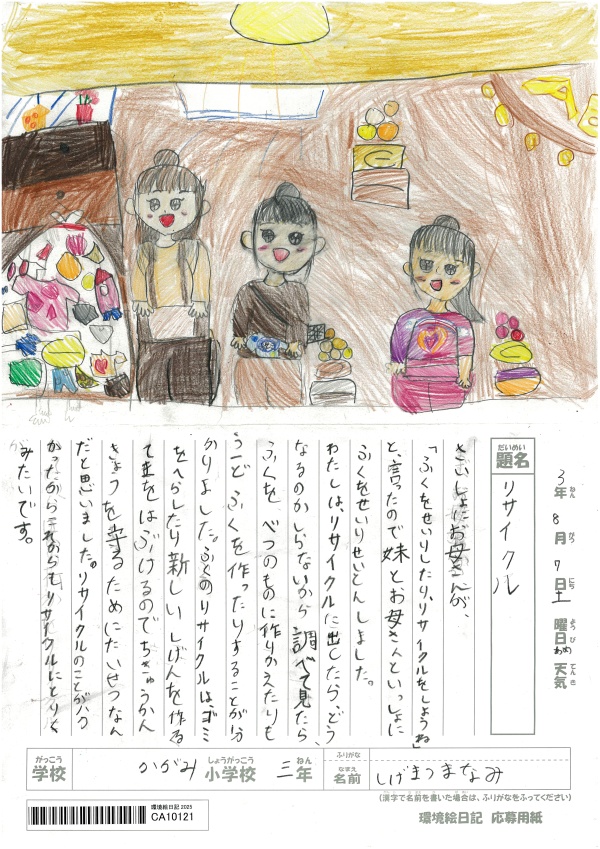 3年 8月 7日 土曜日 あめ 天気
ねん がつ にち ようび てんき
だいめい
題名
リサイクル
さいしょにお母さんが、
「ふくをせいりしたり、リサイクルをしようね」
と、言ったので妹とお母さんといっしょに
ふくをせいりせいとんしました。
わたしは、リサイクルに出したら、どう
なるのかしらないから調べて見たら、
ふくを、べつのものに作りかえたりも
う一ど ふくを作ったりすることが分
かりました。ふくのリサイクルは、ゴミ
をへらしたり新しいしげんを作る
て まをはぶけるのでちきゅうかん
きょうを守るためにたいせつなん
だと思いました。リサイクルのことが分
かったからこれからもリサイクルにとりく
みたいです。
がっこう
学校
かがみ
しょうがっこう
小学校
三
ねん
年
ふりがな
なまえ
名前
しげまつまなみ
(漢字で名前を書いた場合は、ふりがなをふってください)
環境絵日記 2025
CA10121
環境絵日記 応募用紙